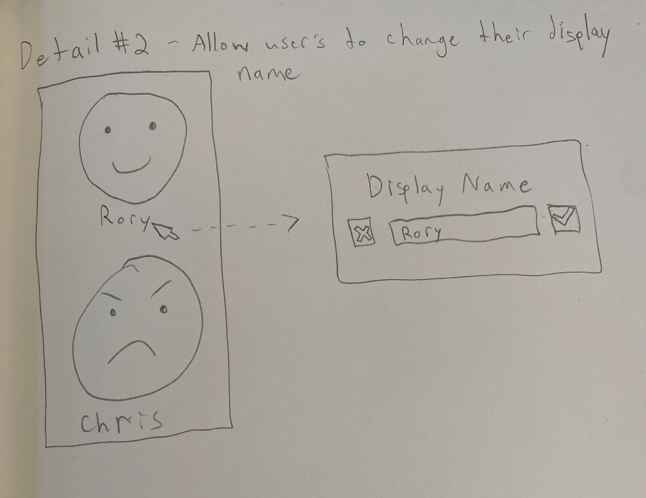 Detail #2 - Allow user's to change their display
name
Rory
Chris
Display Name
Rory